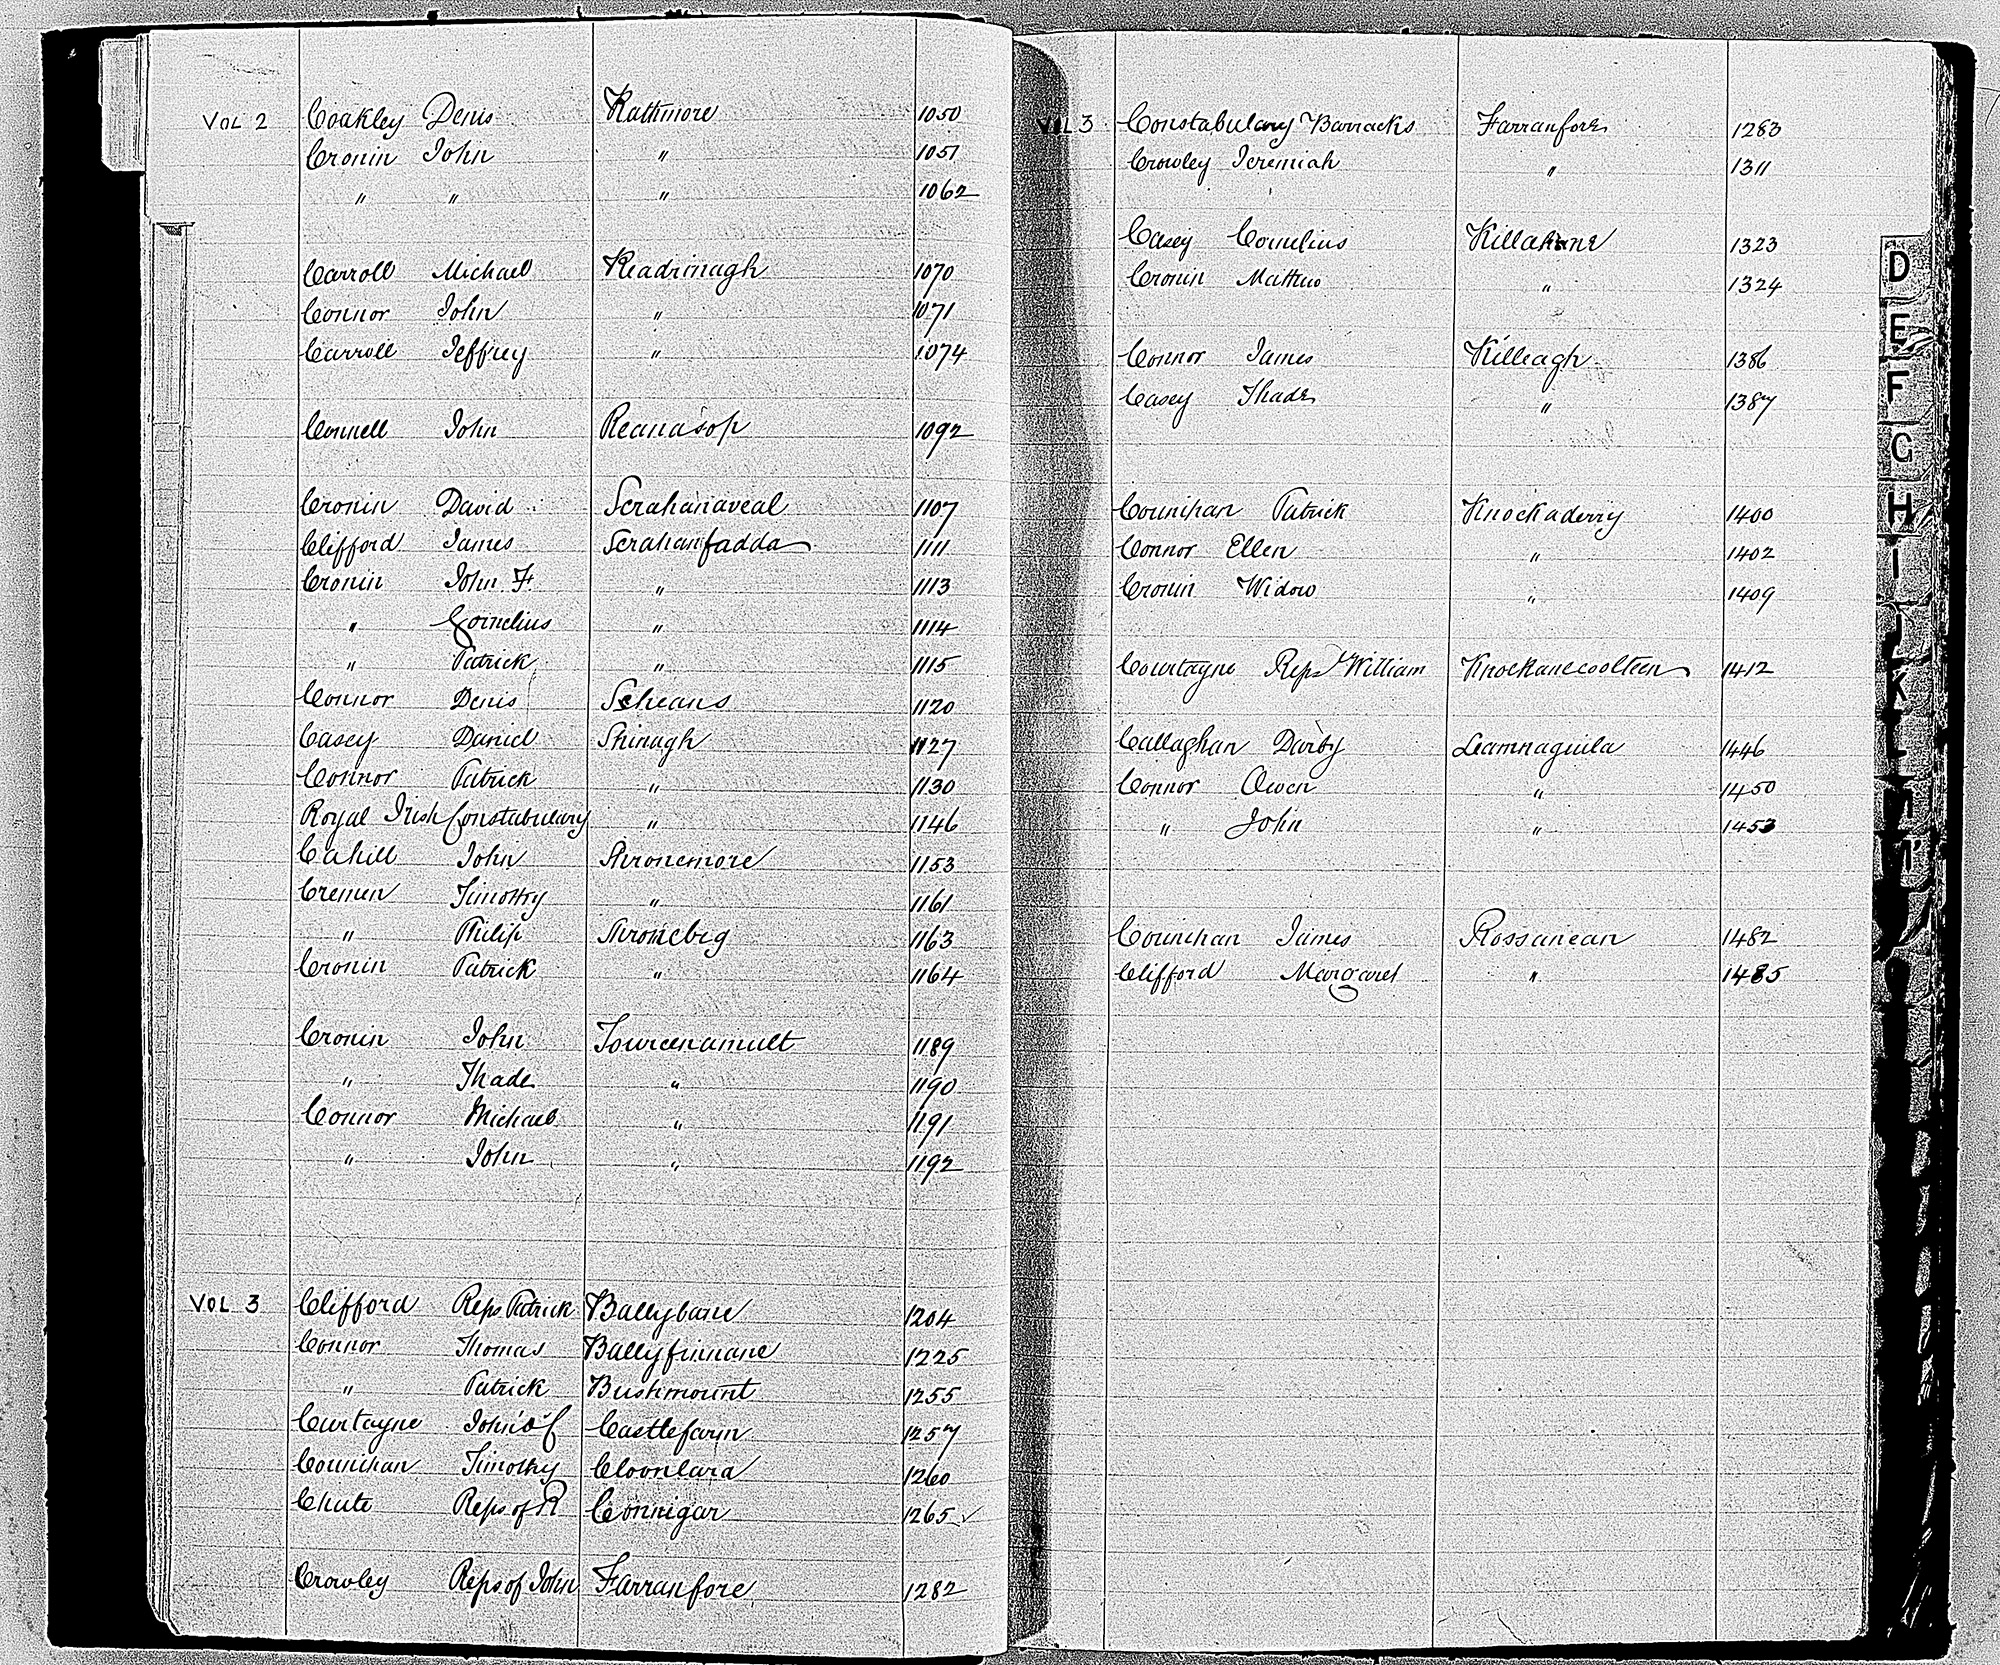 VOL 2 Coakley Denis Rathmore 1050
Cronin John " 1051
" " " 1062
Carroll Michael Readrinagh 1070
Connor John " 1071
Carroll Jeffrey " 1074
Connell John Reanasop 1092
Cronin David Scrahanaveal 1107
Clifford James Scrahanfadda 1111
Cronin John F. " 1113
" Cornelius " 1114
" Patrick " 1115
Connor Denis Scheans 1120
Casey Daniel Shinagh 1127
Connor Patrick " 1130
Royal Irish Constabulary " 1146
Cahill John Shronemore 1153
Cremen Timothy " 1161
" Philip Shronebeg 1163
Cronin Patrick " 1164
Cronin John Toureenamult 1189
" Thade " 1190
Connor Michael " 1191
" John " 1192
VOL 3 Clifford Reps Patrick Ballybane 1204
Connor Thomas Ballyfinnane 1225
" Patrick Bushmount 1255
Curtayne John Castlefarm 1257
Counihan Timothy Cloonlara 1260
Chute Reps of R Connigar 1265
Crowley Reps of John Farranfore 1282
VOL 3 Constabulary Barracks Farranfore 1283
Crowley Jeremiah " 1311
Casey Cornelius Killahane 1323
Cronin Mathew " 1324
Connor James Killeagh 1386
Casey Thade " 1387
Counihan Patrick Knockaderry 1400
Connor Ellen " 1402
Cronin Widow " 1409
Courtayne Reps William Knockanecoolteen 1412
Callaghan Darby Leamnaguila 1446
Connor Owen " 1450
" John " 1453
Counihan James Rossanean 1482
Clifford Margaret " 1485
D
E
F
G
H
I
J
K
L
M